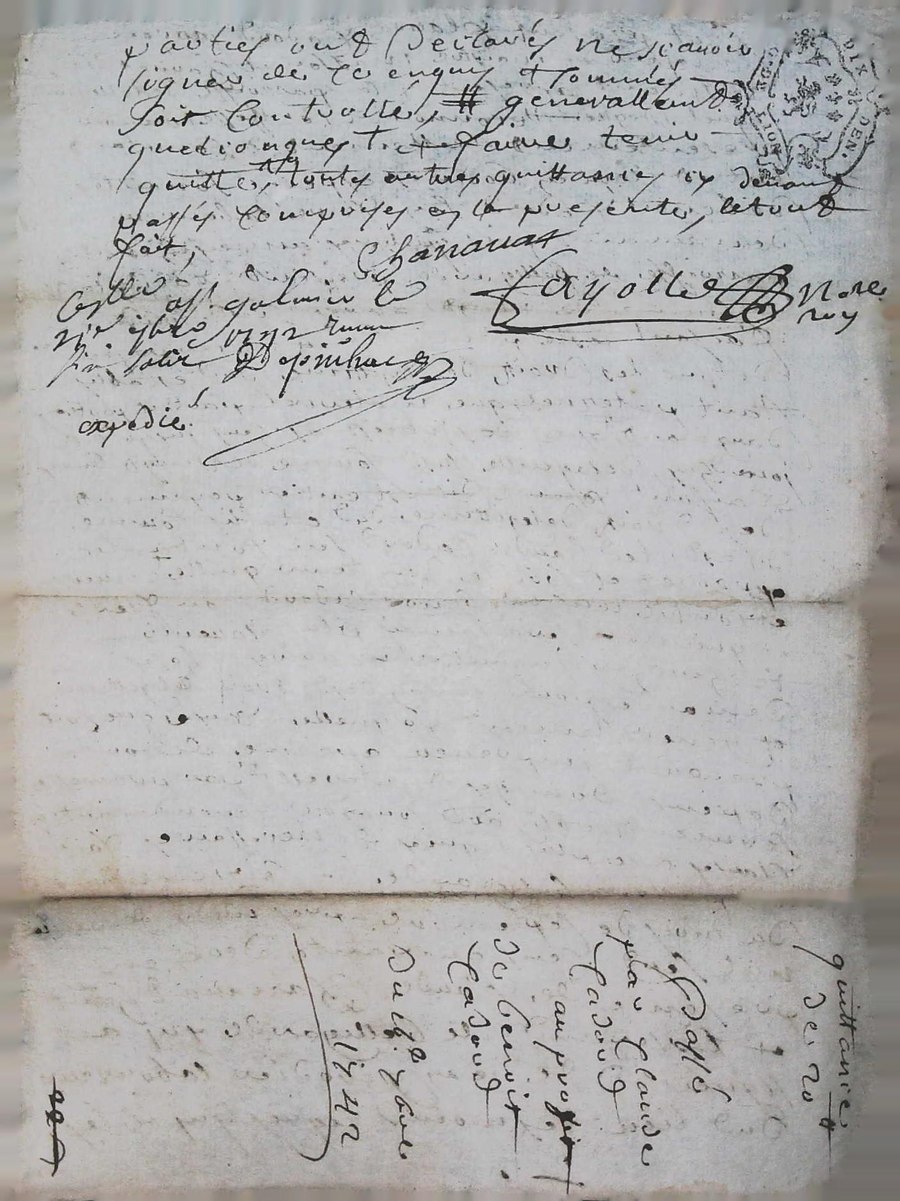 parties ont declarés ne scavoir
signer de ce enquis & sommés
soit controllé, # generallement
quelconques & faire tenir
quitte, toutes autres quittances cy devant
passés comprises en la presente, le tout
fait,
Chanavat
Fayolle Nore
roy
Collé a St galmier le
7bre 1742 Receu
Depinhac
expedié
GE. LION
DIX DEN.
quittance
de 20 #
Passé
par Claude
Cadoud
au proffit
de benoit
Cadoud
Du 16e 7bre
1742